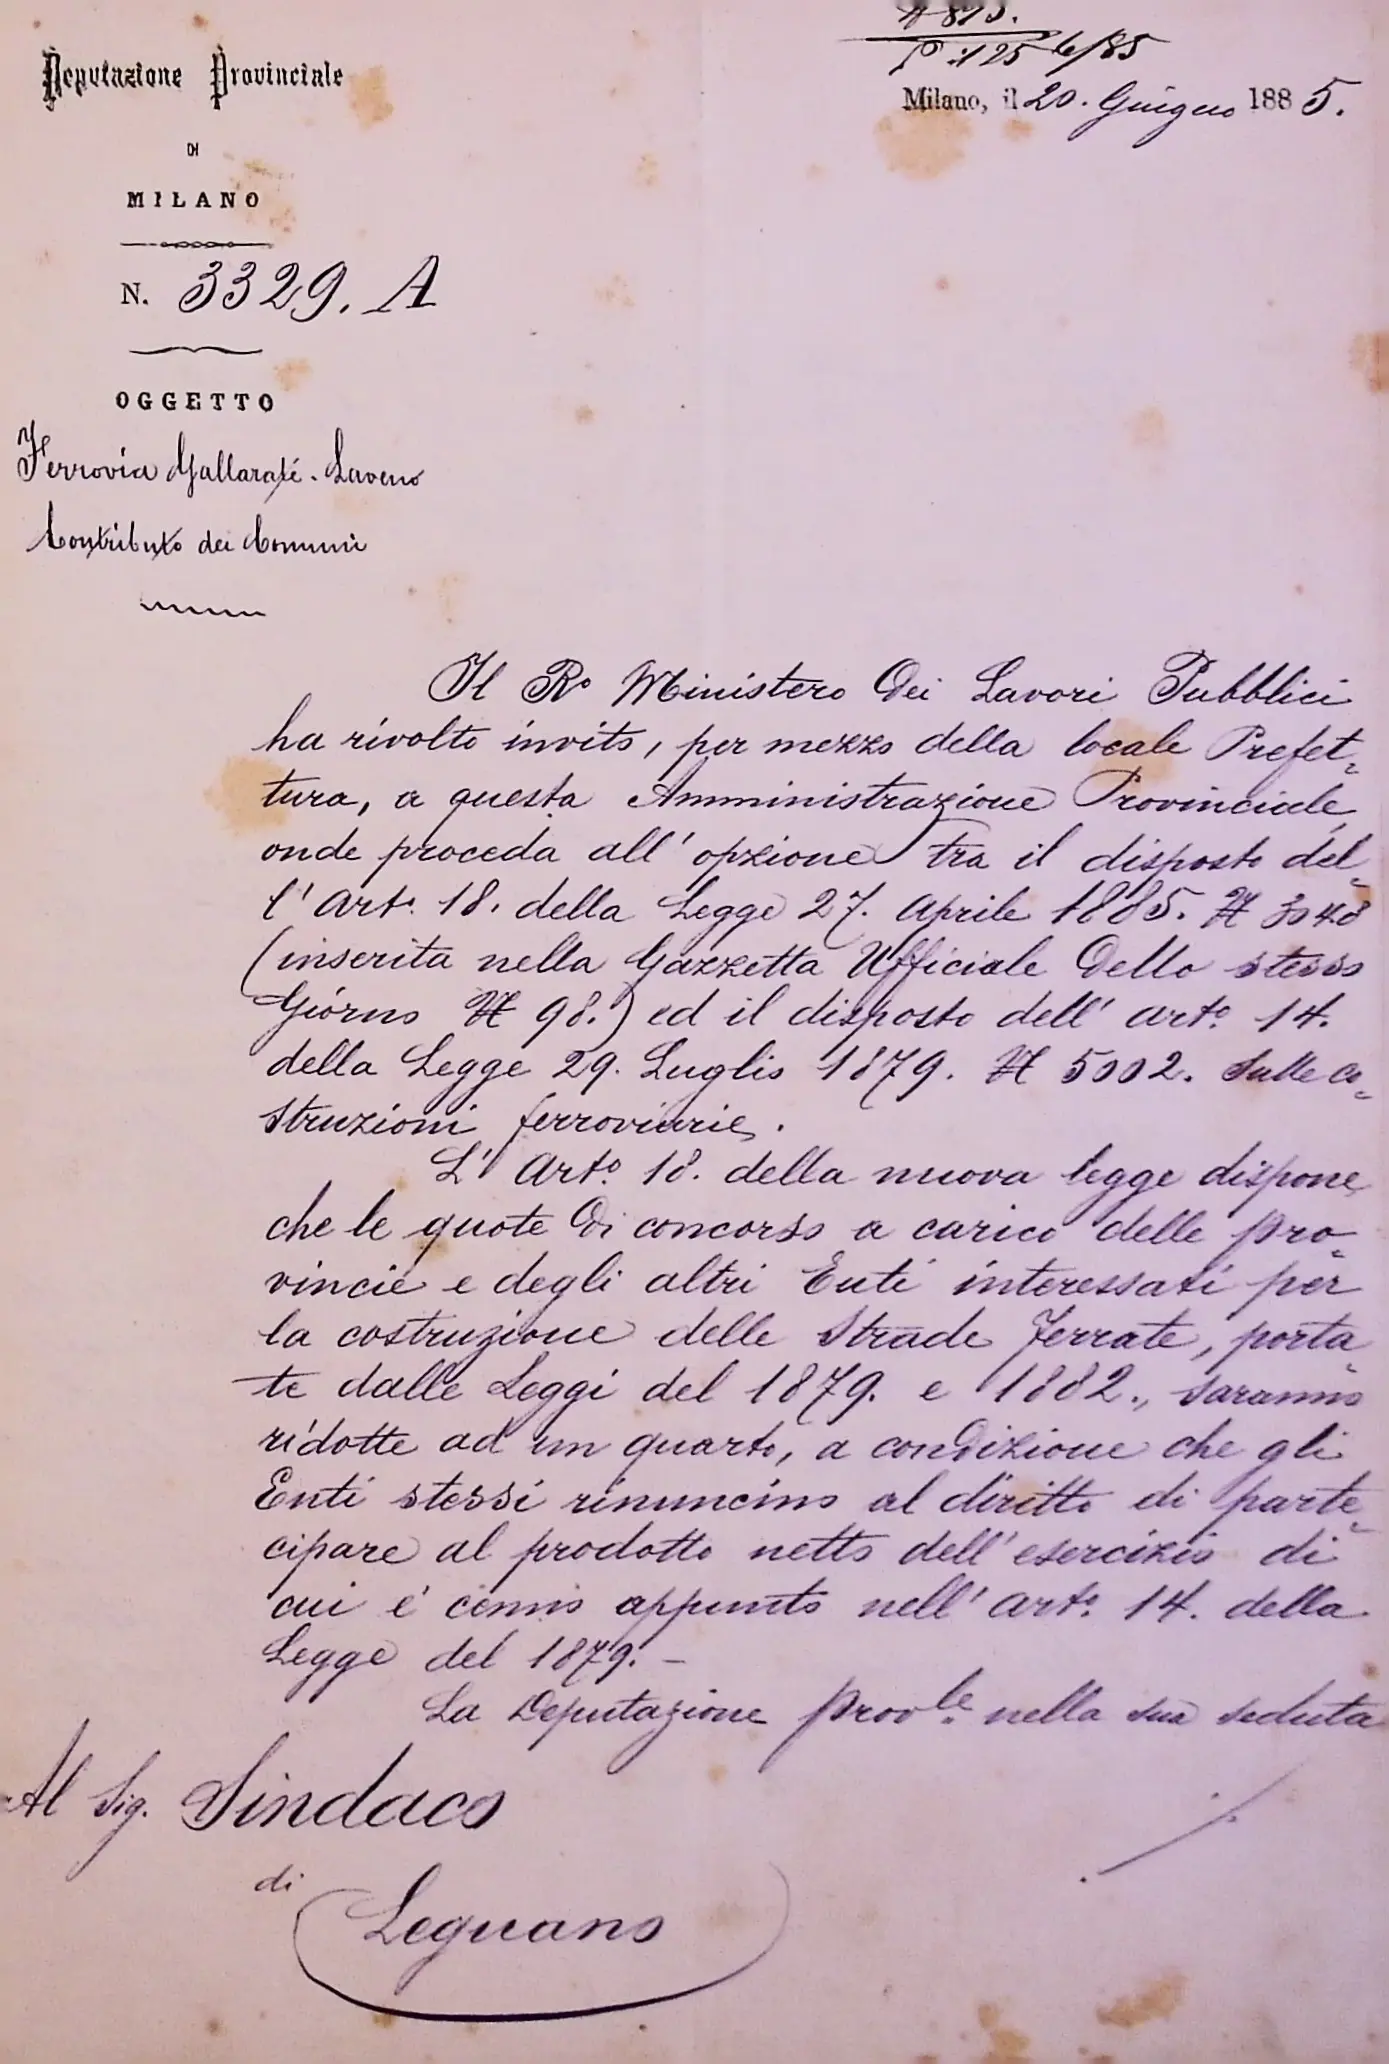 N 815.
P. 125 6/85
Deputazione Provinciale
DI
MILANO
Milano, il 20. Giugno 1885.
N. 3329. A
OGGETTO
Ferrovia Gallarate-Laveno
Contributo dei Comuni
Il Ro Ministero Dei Lavori Pubblici
ha rivolto invito, per mezzo della locale Prefet-
tura, a questa Amministrazione Provinciale,
onde proceda all'opzione tra il disposto del-
l'Arto. 18. della Legge 27. Aprile 1885. N 3048
(inserita nella Gazzetta Ufficiale Dello stesso
Giorno N 98.) ed il disposto dell'arto. 14.
della Legge 29. Luglio 1879. N 5002. sulle co-
struzioni ferroviarie.
L'Arto. 18. della nuova legge dispone
che le quote Di concorso a carico delle pro-
vincie e degli altri Enti interessati per
la costruzione delle Strade Ferrate, porta-
te dalle Leggi del 1879. e 1882., saranno
ridotte ad un quarto, a condizione che gli
Enti stessi rinuncino al diritto di parte-
cipare al prodotto netto dell'esercizio di
cui è cenno appunto nell'Arto. 14. della
Legge del 1879. -
La Deputazione Provle. nella sua seduta
Al Sig. Sindaco
di
Legnano